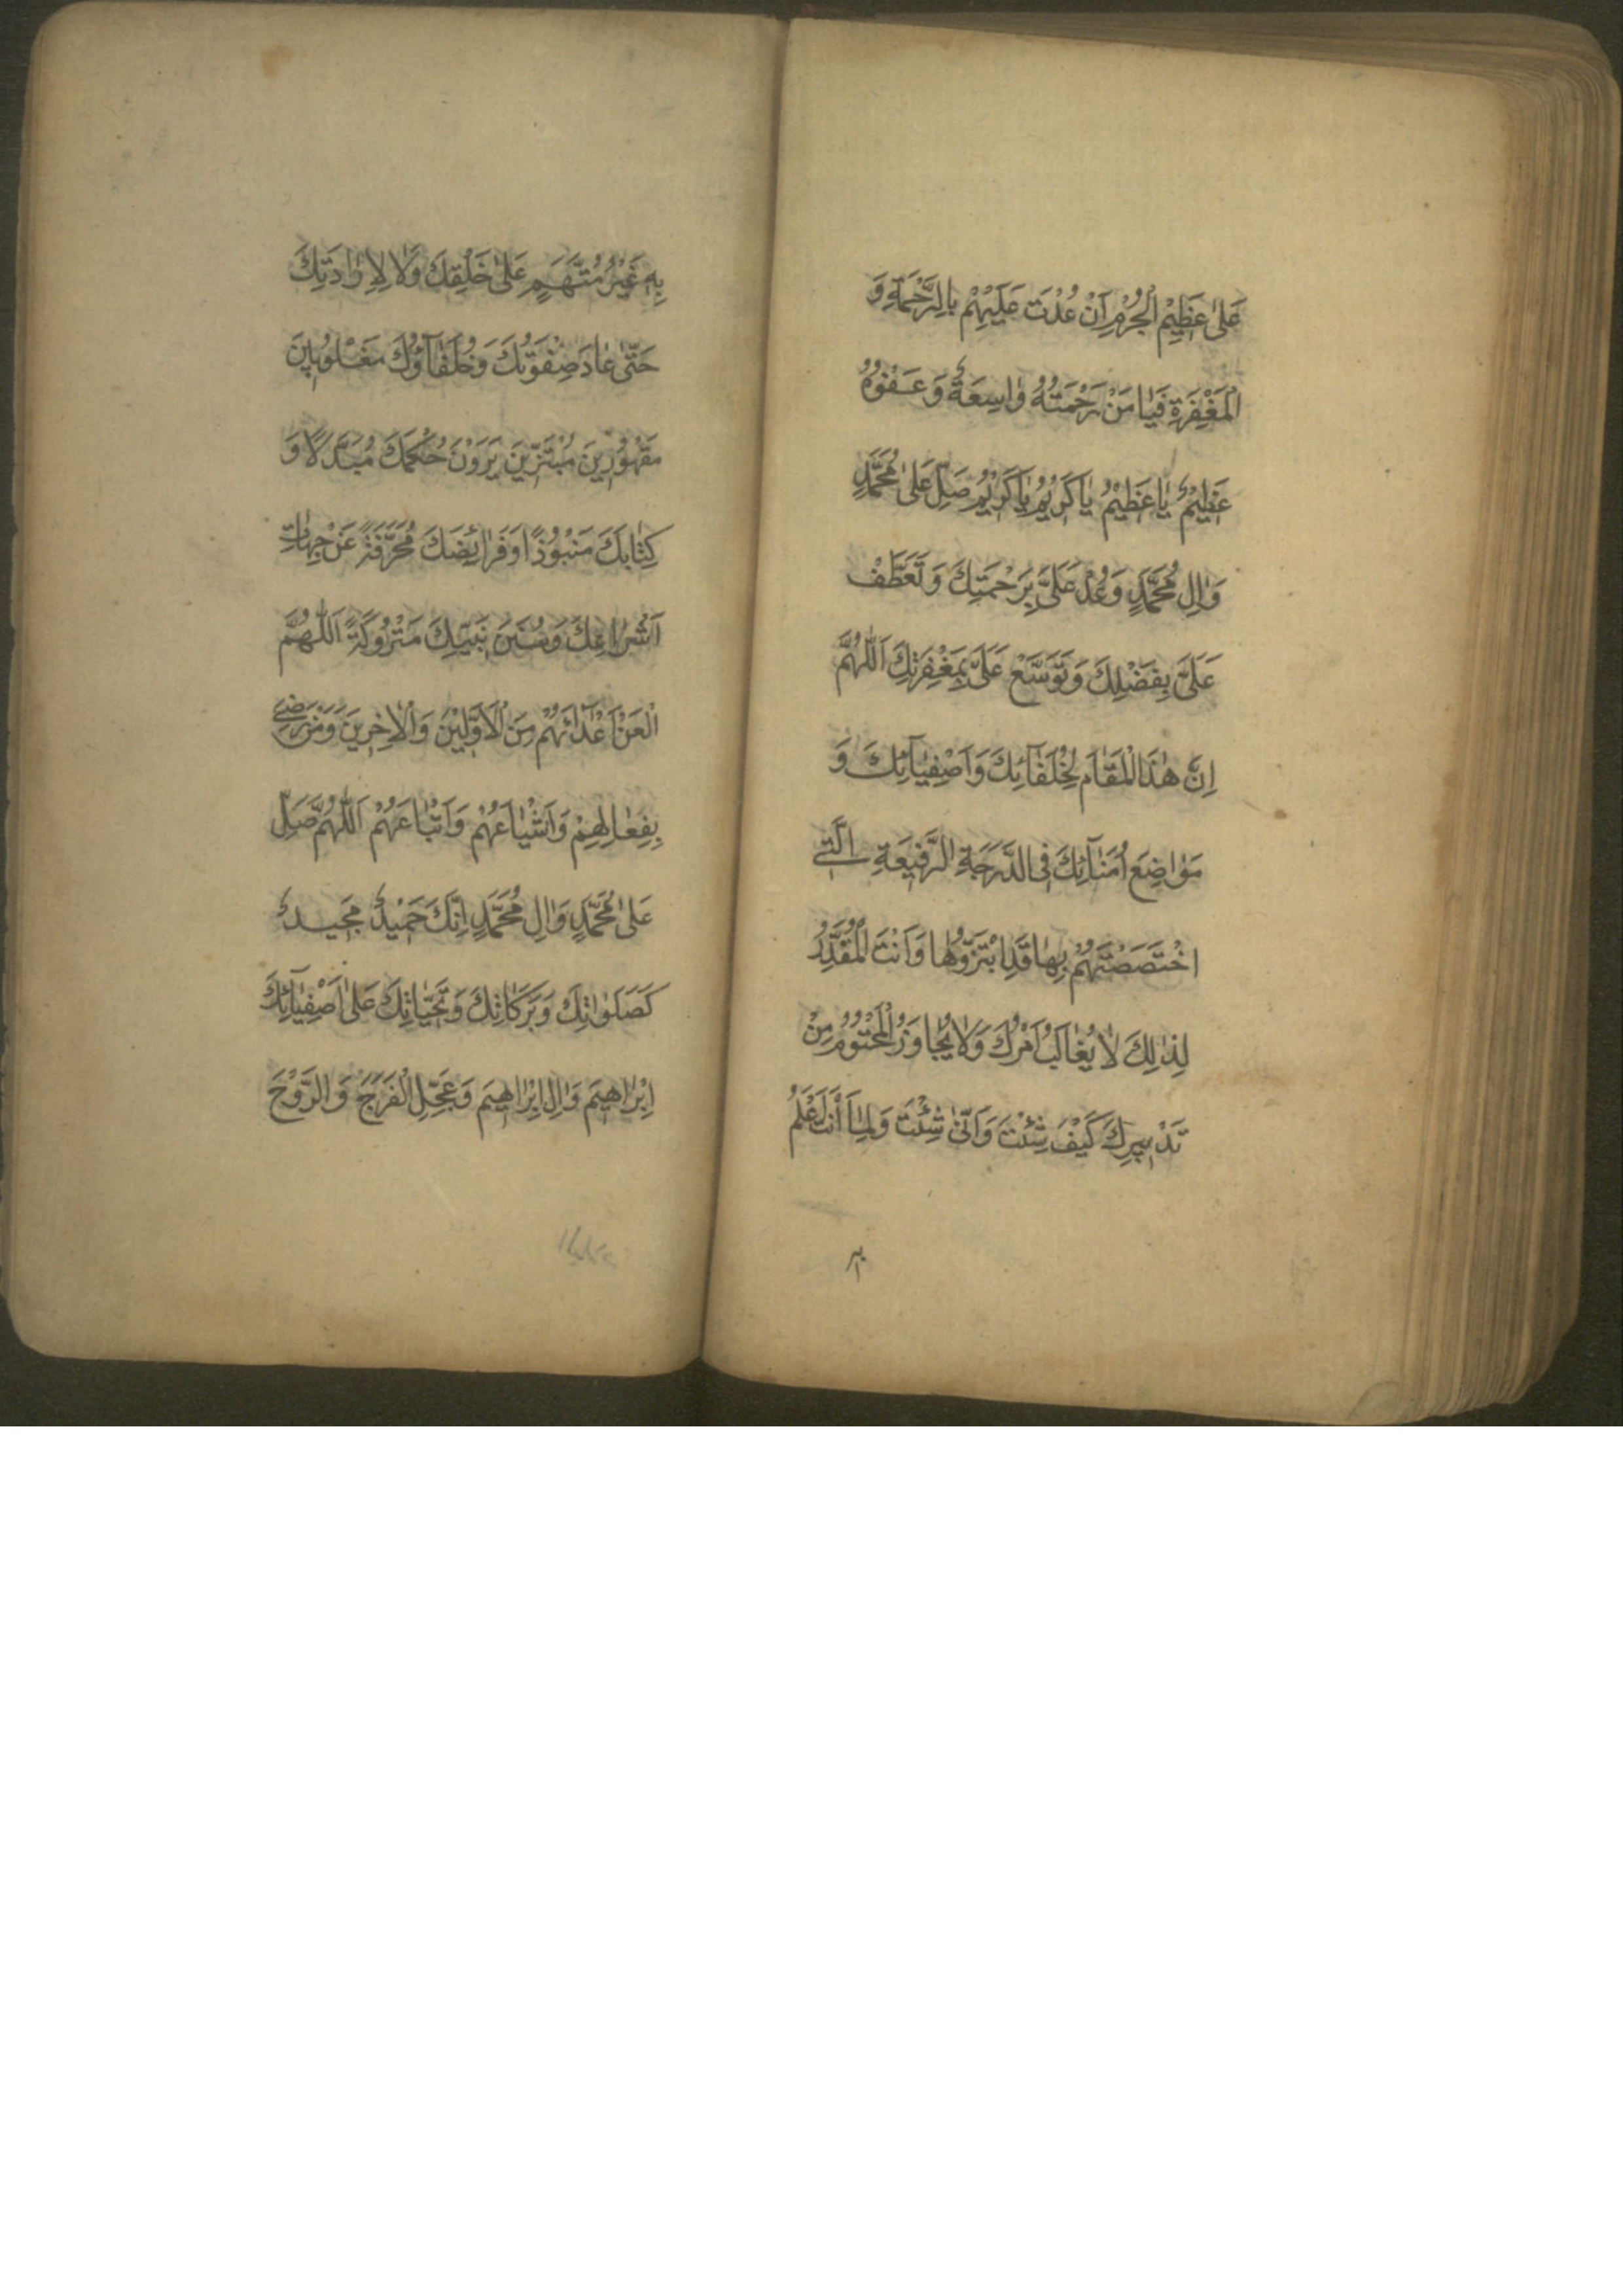 عَلىٰ عَظِيْمِ الْجُرْمِ اَنْ عُدْتَ عَلَيْهِمْ بِالرَّحْمَةِ وَ
الْمَغْفِرَةِ فَيٰا مَنْ رَحْمَتُهُ وٰاسِعَةٌ وَ عَفْوُهُ
عَظِيْمٌ يٰا عَظِيْمُ يٰا كَرِيْمُ يٰا كَرِيْمُ صَلِّ عَلىٰ مُحَمَّدٍ
وَاٰلِ مُحَمَّدٍ وَعُدْ عَلَىَّ بِرَحْمَتِكَ وَ تَعَطَّفْ
عَلَىَّ بِفَضْلِكَ وَ تَوَسَّعْ عَلَىَّ بِمَغْفِرَتِكَ اَللّٰهُمَّ
اِنَّ هٰذَا الْمَقٰامَ لِخُلَفٰآئِكَ وَ اَصْفِيٰآئِكَ وَ
مَوٰاضِعَ اُمَنٰآئِكَ فِى الدَّرَجَةِ الرَّفِيْعَةِ الَّتِے
اخْتَصَصْتَهُمْ بِهٰا قَدِ ابْتَزُّوْهٰا وَ اَنْتَ الْمُقَدِّرُ
لِذٰلِكَ لٰا يُغٰالَبُ اَمْرُكَ وَ لٰا يُجٰاوَزُ الْمَحْتُوْمُ مِنْ
تَدْبِيْرِكَ كَيْفَ شِئْتَ وَ اَنّىٰ شِئْتَ وَ لِمٰا اَنْتَ اَعْلَمُ
بہ
بِهٖ غَيْرُ مُتَّهَمٍ عَلىٰ خَلْقِكَ وَلٰا لِاِرٰادَتِكَ
حَتّىٰ عٰادَ صِفْوَتُكَ وَ خُلَفٰآؤُكَ مَغْلُوْبِيْنَ
مَقْهُوْرِيْنَ مُبْتَزِّيْنَ يَرَوْنَ حُكْمَكَ مُبَدَّلًا وَ
كِتٰابَكَ مَنْبُوْذًا وَ فَرٰائِضَكَ مُحَرَّفَةً عَنْ جِهٰاتِ
اَشْرٰاعِكَ وَ سُنَنَ نَبِيِّكَ مَتْرُوْكَةً اَللّٰهُمَّ
الْعَنْ اَعْدٰآئَهُمْ مِنَ الْاَوَّلِيْنَ وَ الْاٰخِرِيْنَ وَ مَنْ رَضِےَ
بِفِعٰالِهِمْ وَ اَشْيٰاعَهُمْ وَ اَتْبٰاعَهُمْ اَللّٰهُمَّ صَلِّ
عَلىٰ مُحَمَّدٍ وَاٰلِ مُحَمَّدٍ اِنَّكَ حَمِيْدٌ مَجِيْدٌ
كَصَلَوٰاتِكَ وَ بَرَكٰاتِكَ وَ تَحِيّٰاتِكَ عَلىٰ اَصْفِيٰآئِكَ
اِبْرٰاهِيْمَ وَاٰلِ اِبْرٰاهِيْمَ وَ عَجِّلِ الْفَرَجَ وَ الرَّوْحَ